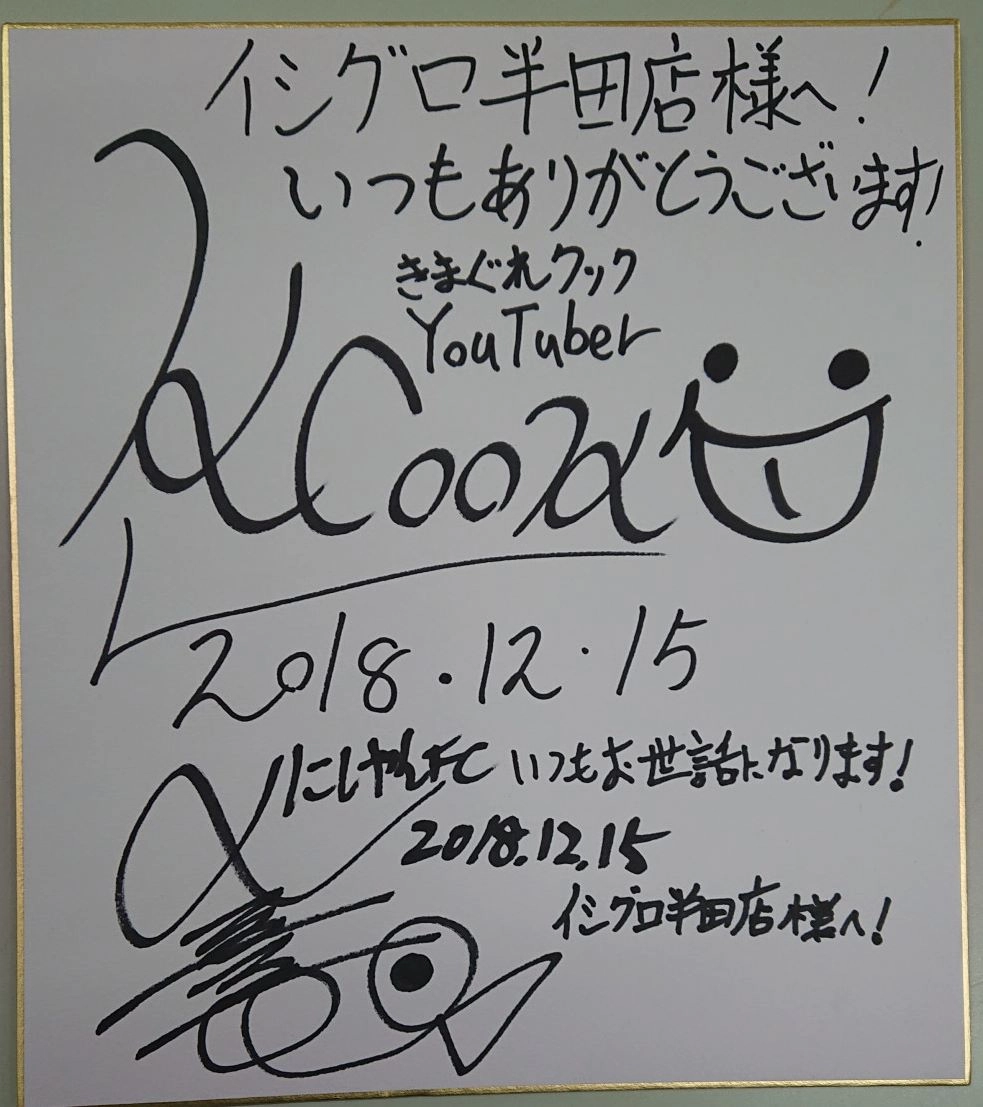 イシグロ半田店様へ!
いつもありがとうございます!
きまぐれクック
YouTuber
2018.12.15
にしやんFC いつもお世話になります!
2018.12.15
イシグロ半田店様へ!